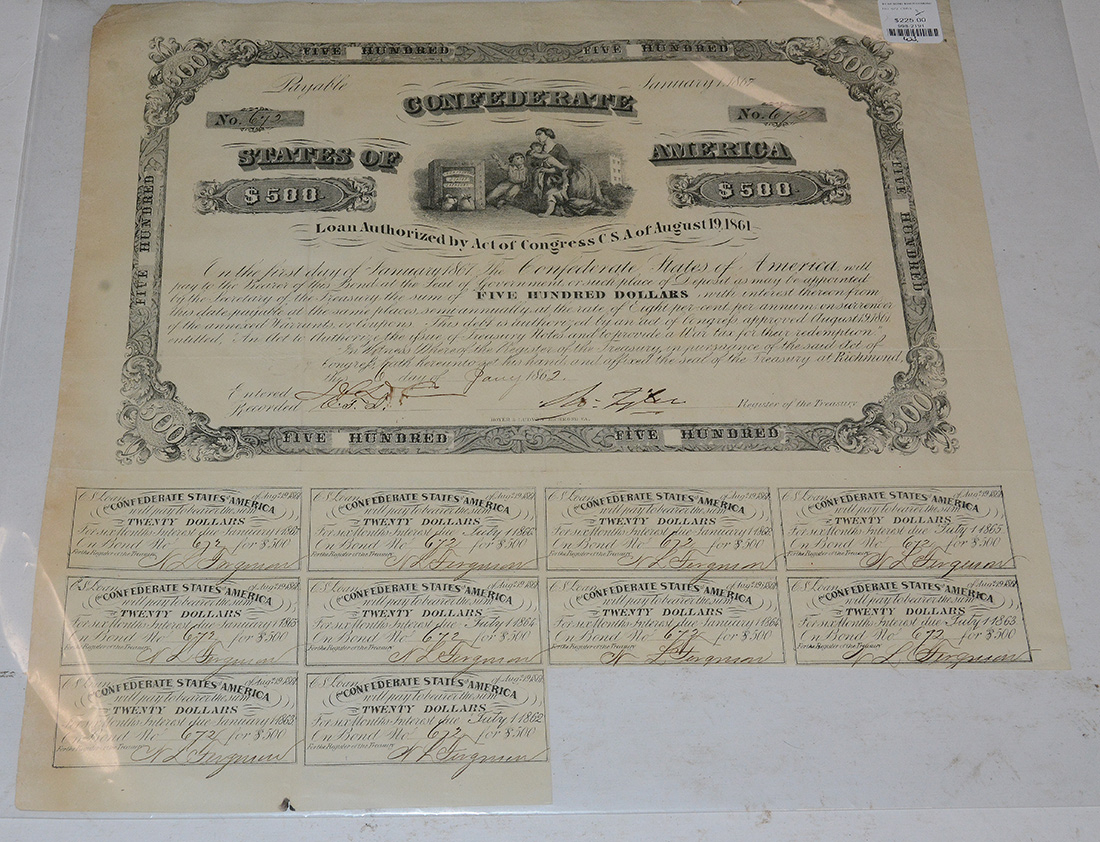 $225.00
FIVE HUNDRED FIVE HUNDRED
500 500
Payable January 1, 1867
CONFEDERATE
No. 672 No. 672
STATES OF AMERICA
$500 $500
Loan Authorized by Act of Congress C S A of August 19, 1861
On the first day of January 1867 The Confederate States of America will
pay to the Bearer of this Bond at the Seat of Government or such place of Deposit as may be appointed
by the Secretary of the Treasury the sum of FIVE HUNDRED DOLLARS, with interest thereon from
this date payable at the same places, semi annually at the rate of Eight per cent per annum on surrender
of the annexed Warrants or Coupons. This debt is authorized by an Act of Congress approved August 19, 1861
entitled, "An Act to Authorize the issue of Treasury Notes and to provide a War tax for their redemption"
In Witness Whereof the Register of the Treasury in pursuance of the said Act of
Congress, hath hereunto set his hand and affixed the seal of the Treasury at Richmond,
this 6 day of Jany 1862.
Entered
Recorded Register of the Treasury
500 500
FIVE HUNDRED FIVE HUNDRED
FIVE HUNDRED
FIVE HUNDRED
C S Loan of Augt 19 1861 C S Loan of Augt 19 1861 C S Loan of Augt 19 1861 C S Loan of Augt 19 1861
The CONFEDERATE STATES of AMERICA The CONFEDERATE STATES of AMERICA The CONFEDERATE STATES of AMERICA The CONFEDERATE STATES of AMERICA
will pay to bearer the sum will pay to bearer the sum will pay to bearer the sum will pay to bearer the sum
TWENTY DOLLARS TWENTY DOLLARS TWENTY DOLLARS TWENTY DOLLARS
For six Months Interest due January 1 For six Months Interest due July 1 For six Months Interest due January 1 For six Months Interest due July 1 1865
On Bond No 672 for $500 On Bond No 672 for $500 On Bond No 672 for $500 On Bond No 672 for $500
For the Register of the Treasury For the Register of the Treasury For the Register of the Treasury For the Register of the Treasury
N L Ferguson N L Ferguson N L Ferguson N L Ferguson
C S Loan of Augt 19 1861 C S Loan of Augt 19 1861 C S Loan of Augt 19 1861 C S Loan of Augt 19 1861
The CONFEDERATE STATES of AMERICA The CONFEDERATE STATES of AMERICA The CONFEDERATE STATES of AMERICA The CONFEDERATE STATES of AMERICA
will pay to bearer the sum will pay to bearer the sum will pay to bearer the sum will pay to bearer the sum
TWENTY DOLLARS TWENTY DOLLARS TWENTY DOLLARS TWENTY DOLLARS
For six Months Interest due January 1 1865 For six Months Interest due July 1 1864 For six Months Interest due January 1 1864 For six Months Interest due July 1 1863
On Bond No 672 for $500 On Bond No 672 for $500 On Bond No 672 for $500 On Bond No 672 for $500
For the Register of the Treasury For the Register of the Treasury For the Register of the Treasury For the Register of the Treasury
N L Ferguson N L Ferguson N L Ferguson N L Ferguson
C S Loan of Augt 19 1861 C S Loan of Augt 19 1861
The CONFEDERATE STATES of AMERICA The CONFEDERATE STATES of AMERICA
will pay to bearer the sum will pay to bearer the sum
TWENTY DOLLARS TWENTY DOLLARS
For six Months Interest due January 1 1863 For six Months Interest due July 1 1862
On Bond No 672 for $500 On Bond No 672 for $500
For the Register of the Treasury For the Register of the Treasury
N L Ferguson N L Ferguson